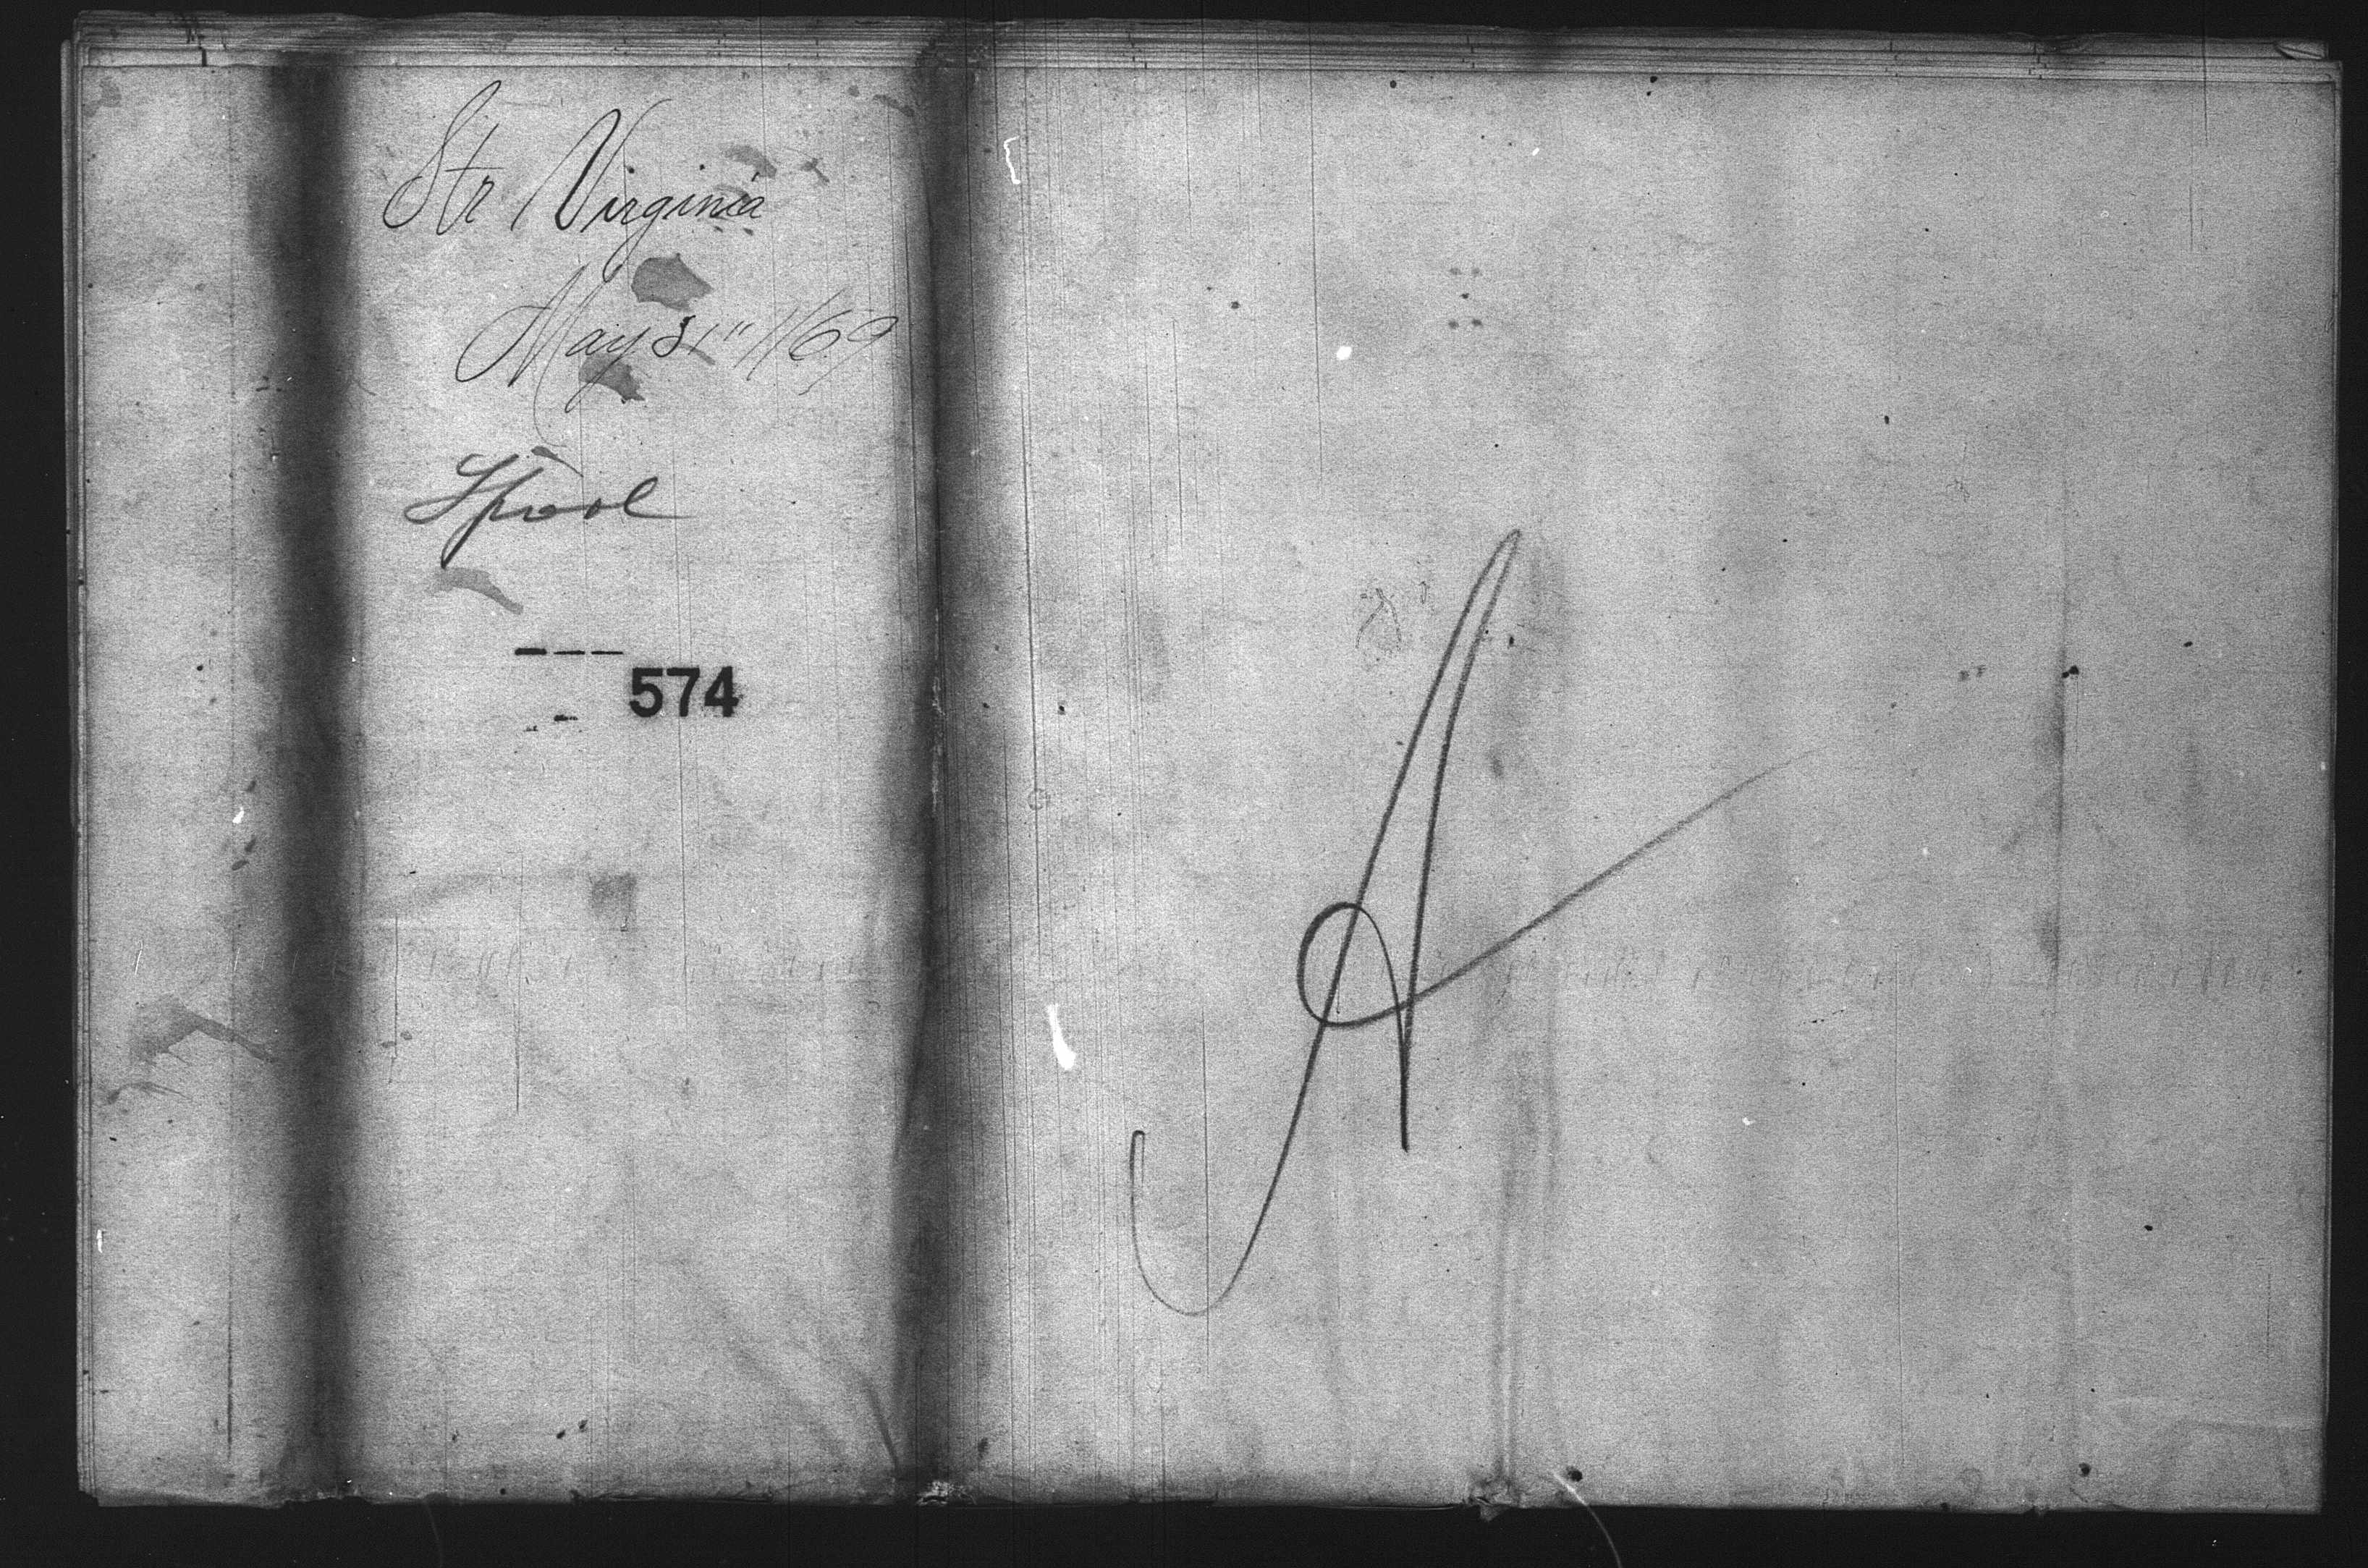 Str Virginia
May 31" 1/69
Lpool
574
A